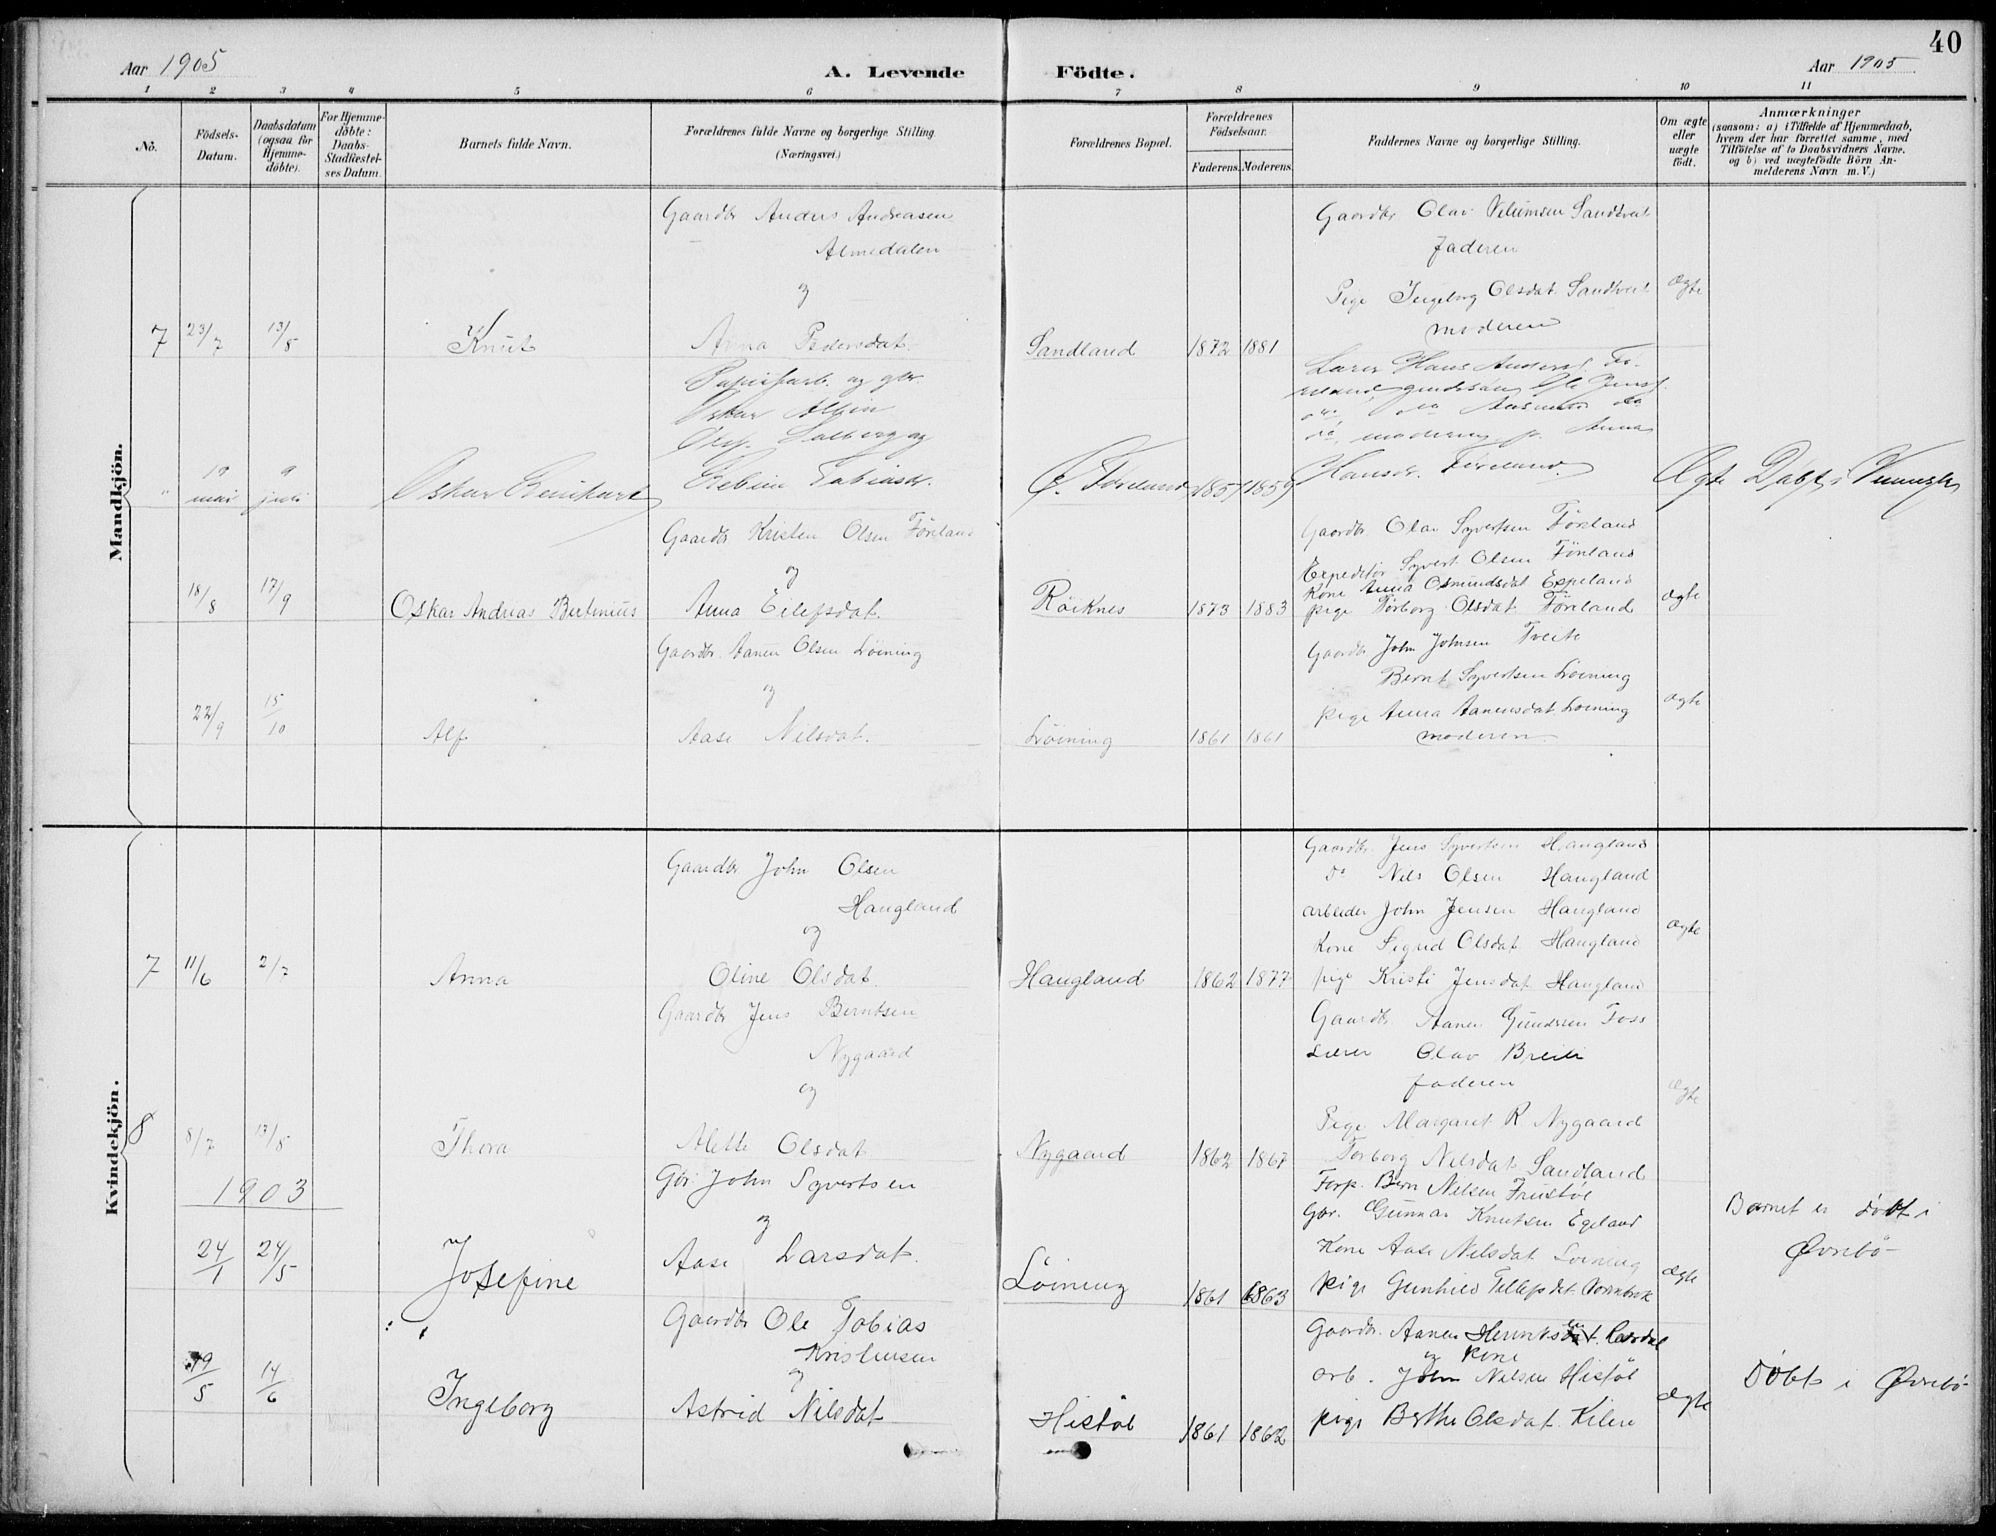 40
Aar 1905
A. Levende Födte.
Aar 1905
1 2 3 4 5 6 7 8 9 10 11
No.
Födsels-
Datum.
Daabsdatum
(ogsaa for
Hjemme-
døbte).
For Hjemme-
døbte:
Daabs-
Stadfæstel-
ses Datum.
Barnets fulde Navn.
Forældrenes fulde Navne og borgerlige Stilling.
(Næringsvei.)
Forældrenes Bopæl.
Forældrenes
Födselsaar.
Faderens. Moderens.
Faddernes Navne og borgerlige Stilling.
Om ægte
eller
uægte
født.
Anmærkninger
(saasom: a) i Tilfælde af Hjemmedaab,
hvem der har forrettet samme, med
Tilføielse af to Daabsvidners Navne.
og b) ved uægtefødte Börn An-
melderens Navn m. V.)
Mandkjön.
Gaardbr Anders Andreasen
Almedalen
og
7 23/7 13/8 Knut Anna Pedersdat. Sandland 1872 1881
Gaardbr Olav Sandtveit
faderen
Pige Ingeborg Olsdat. Sandtveit
moderen
Ægte
og gbr.
Oskar
og
" 19 mai 9 juli Oskar 1857 1859
Lærer Hans
moderen, p. Anna
Hansdr. Föreland.
Ægte Døbt i
Gaardbr Kristen Olsen Föreland
og
18/8 17/9 Oskar Andreas Bertinius Anna Eilefsdat. Röiknes 1873 1883
Gaardbr Olav Syvertsen Föreland
Expeditör Syvert Olsen Föreland
Kone Anna Osmundsdat Espeland
pige Torborg Olsdat. Föreland
ægte
Gaardbr. Aanen Olsen Löining
og
22/9 15/10 Alf Aase Nilsdat. Löining 1861 1861
Gaardbr John Johnsen Tveite
Bernt Syvertsen Löining
pige Anna Aanensdat. Löining
moderen
ægte
Kvindekjön.
Gaardbr John Olsen
Haugland
og
7 11/6 2/7 Anna Oline Olsdat. Haugland 1862 1877
Gaardbr. Jens Syvertsen Haugland
do Nils Olsen Haugland
arbeider John Jensen Haugland
Kone Sigrid Olsdat Haugland
pige Kristi Jensdat Haugland
ægte
Gaardbr Jens Berntsen
Nygaard
og
8 8/7 13/8 Thora Alette Olsdat Nygaard 1862 1867
Gaardbr Aanen Gundersen Foss
Lærer Olav Breili
faderen
Pige Margaret R Nygaard
Torborg Nilsdat Sandland
Ægte
1903
Gbr. John Syvertsen
og
24/1 24/5 Josefine Aase Larsdat. Löining 1861 1863
Forp. Bern Nilsen Frustöl
Gbr. Gunnar Knutsen Egeland
Kone Aase Nilsdat Löining
pige Gunhild Tellefsdat
ægte
Barnet er döbt i
Øvrebö
Gaardbr Ole Tobias
Kristensen
og
19/5 14/6 Ingeborg Astrid Nilsdat Histöl 1861 1862
Gaardbr. Aanen
og kone
arb. John Nilsen Histöl
pige Berthe Olsdat. Kilen
ægte
Döbt i Øvrebö